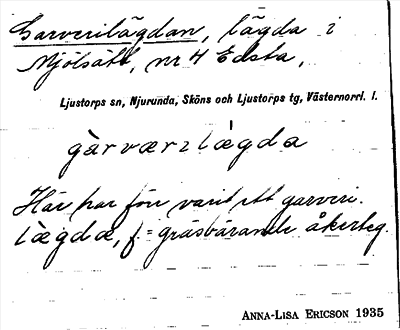 Garverilägdan, lägda i
Mjölsätt, nr 4 Edsta,
Ljustorps sn, Njurunda, Sköns och Ljustorps tg, Västernorrl. l.
gàrværɩlæ̀gda
Här har förr varit ett garveri.
lægda, f = gräsbärande åkerteg.
ANNA-LISA ERICSON 1935